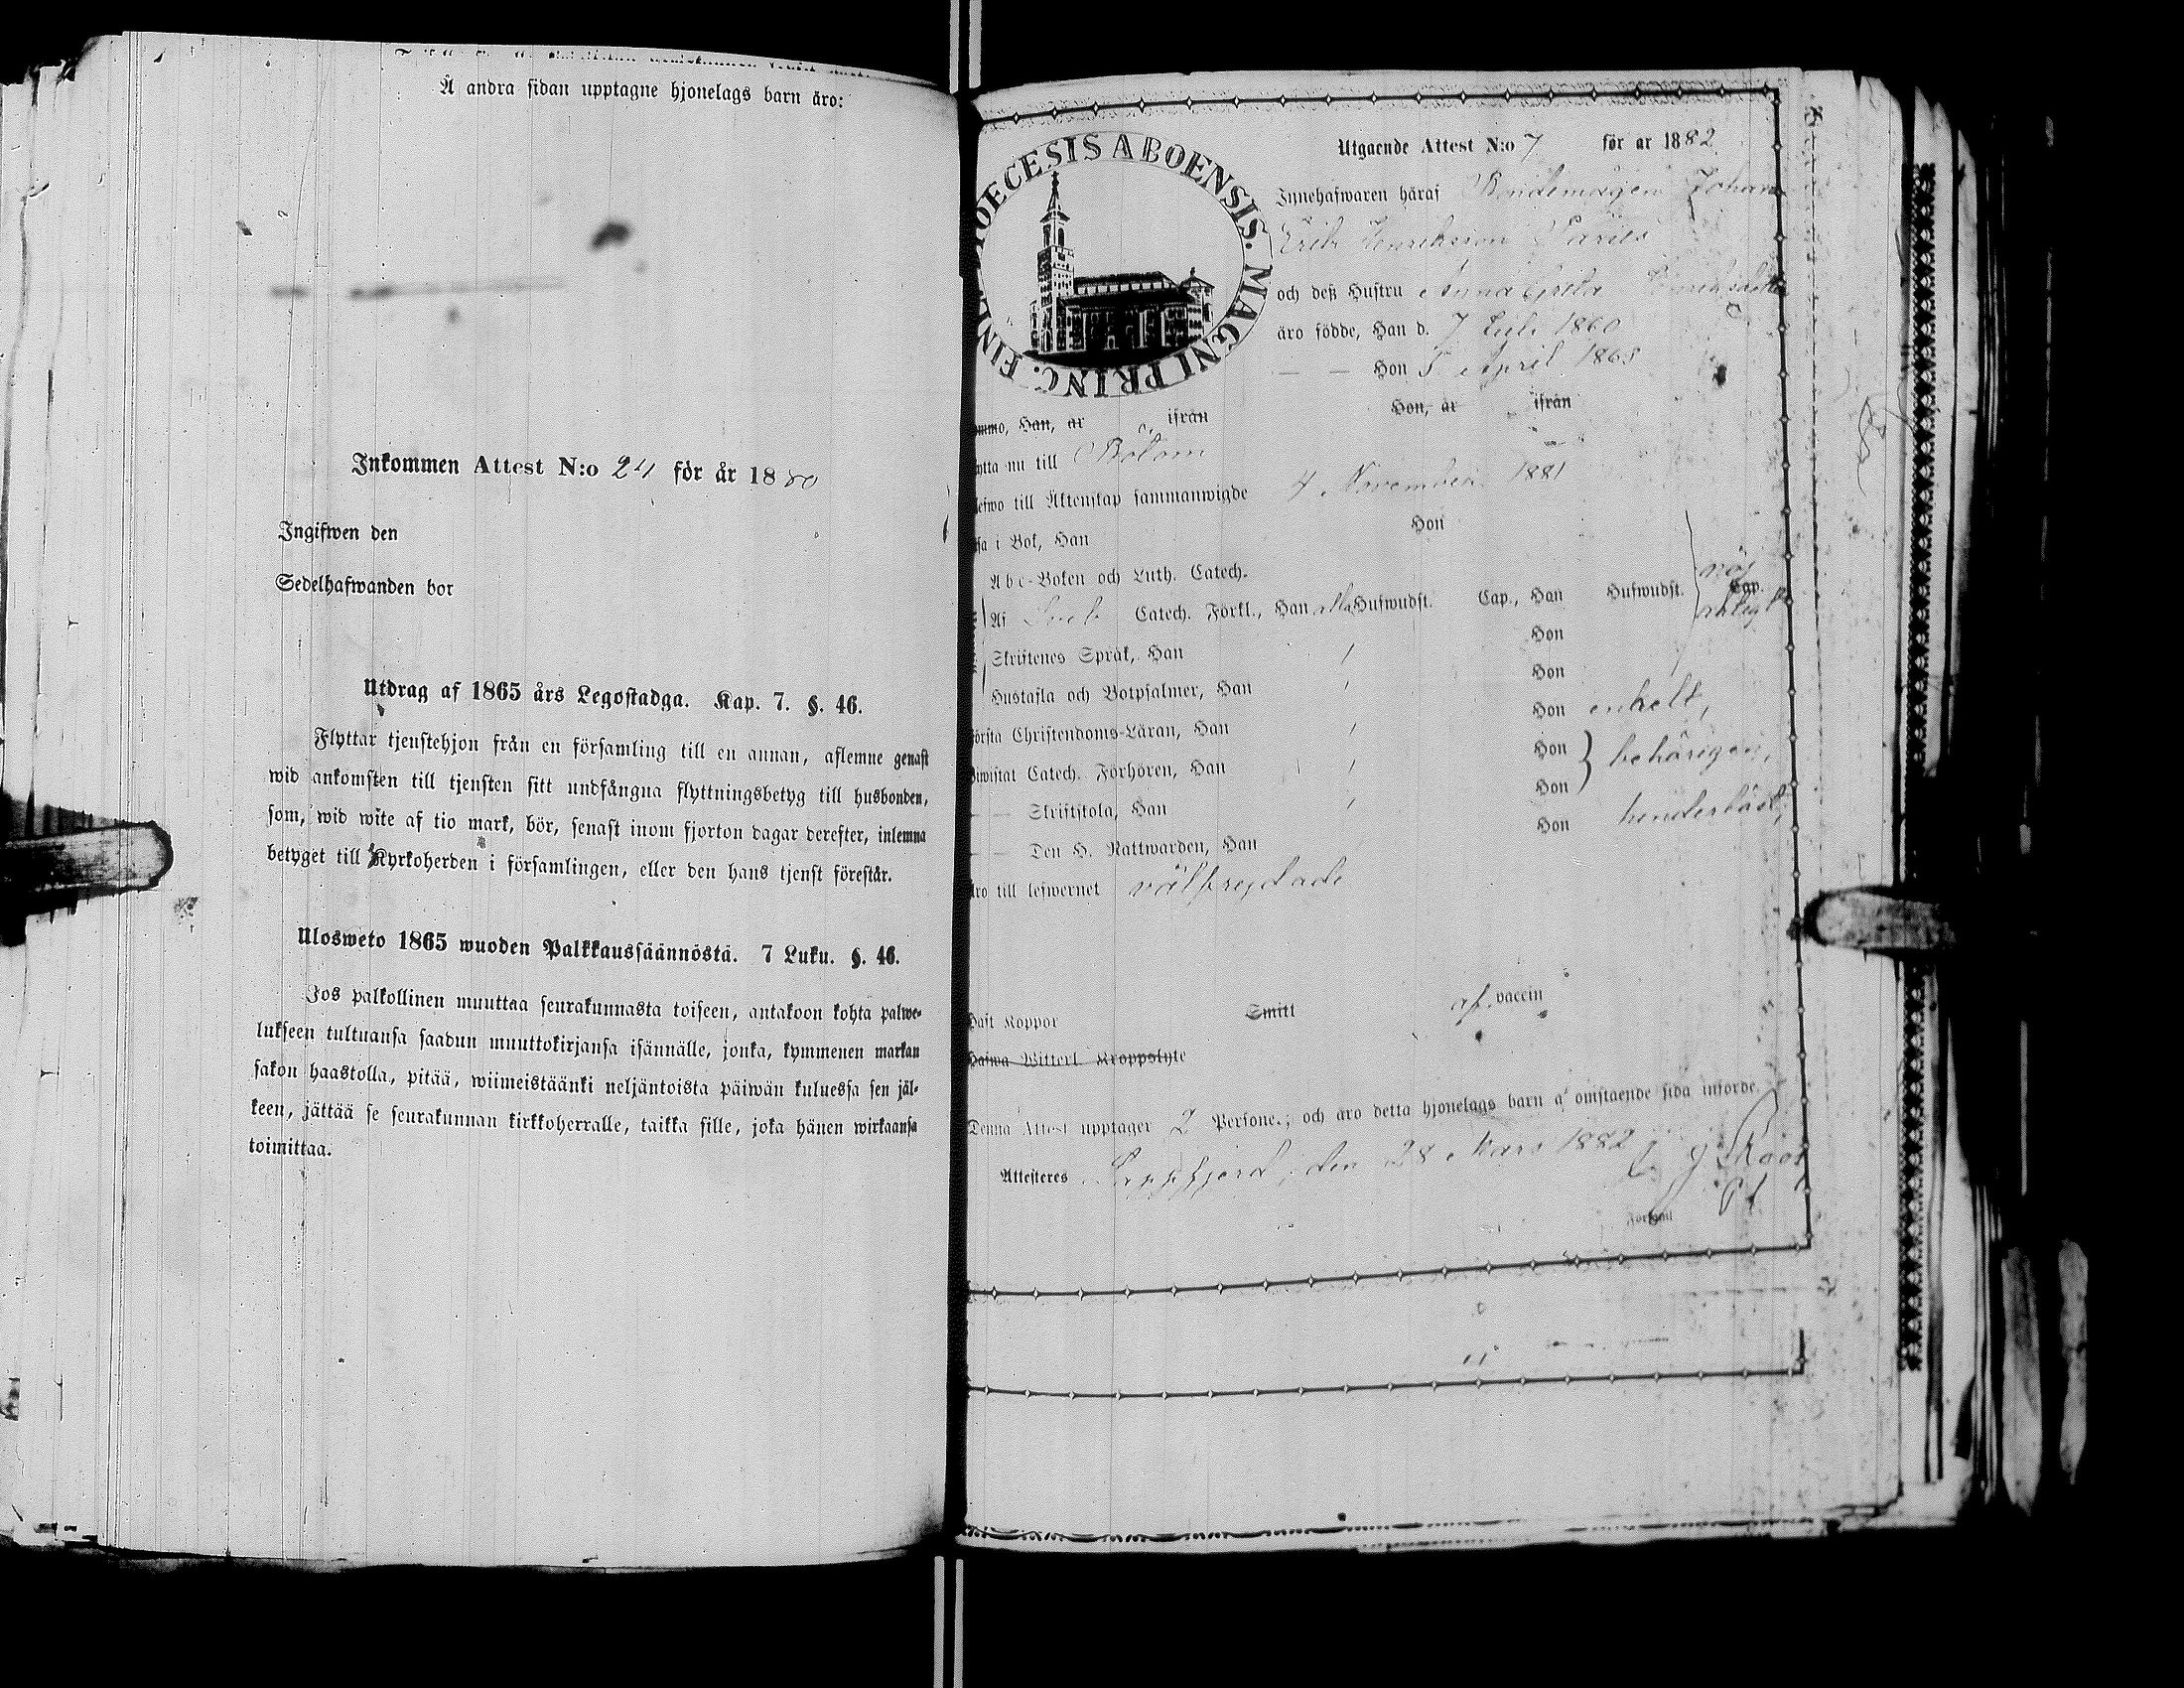 Å andra sidan upptagne hjonelags barn äro:
Inkommen Attest N:o 24 för år 1880
Ingifwen den
Sedelhafwanden bor
Utdrag af 1865 års Legostadga. Kap. 7. §. 46.
Flyttar tjenstehjon från en församling till en annan, aflemne genast
wid ankomsten till tjensten sitt undfångna flyttningsbetyg till husbonden,
som, wid wite af tio mark, bör, senast inom fjorton dagar derefter, inlemna
betyget till Kyrkoherden i församlingen, eller den hans tjenst förestår.
Ulosweto 1865 wuoden Palkkaussäännöstä. 7 Luku. §. 46.
Jos palkollinen muuttaa seurakunnasta toiseen, antakoon kohta palwe-
lukseen tultuansa saadun muuttokirjansa isännälle, jonka, kymmenen markan
sakon haastolla, pitää, wiimeistäänki neljäntoista päiwän kuluessa sen jäl-
keen, jättää se seurakunnan kirkkoherralle, taikka sille, joka hänen wirkaansa
toimittaa.
DIOECESIS ABOENSIS. MAGNI PRINC. FINL.
Utgaende Attest N:o 7 för ar 1882
Innehafwaren häraf Bondemågen Johan
Erik Henriksson
och deß Hustru Anna Greta
äro födde, Han d. 7 Juli 1860
— — Hon 5 April 1863
Han, är ifrån Hon, är ifrån
nu till Bötom
till Äktenskap sammanwigde 4 November 1881
i Bok, Han Hon
Abc-Boken och Luth. Catech.
Af Catech. Förkl., Han alla Hufwudst. Cap., Han Hufwudst. Cap.
Skriftenes Språk, Han Hon
Hustafla och Botpsalmer, Han Hon
Christendoms-Läran, Han Hon enkelt,
Catech. Förhören, Han Hon behörigen,
— — Skriftskola, Han Hon
— — Den H. Nattwarden, Han Hon hinderlöst,
till lefwernet välfrejdade
Haft Koppor Smitt af vaccin
Hafwa Witterl. Kroppslyte
Denna Attest upptager 2 Persone.; och äro detta hjonelags barn å omstaende sida införde.
Attesteras Lappfjerd, den 28 Mars 1882